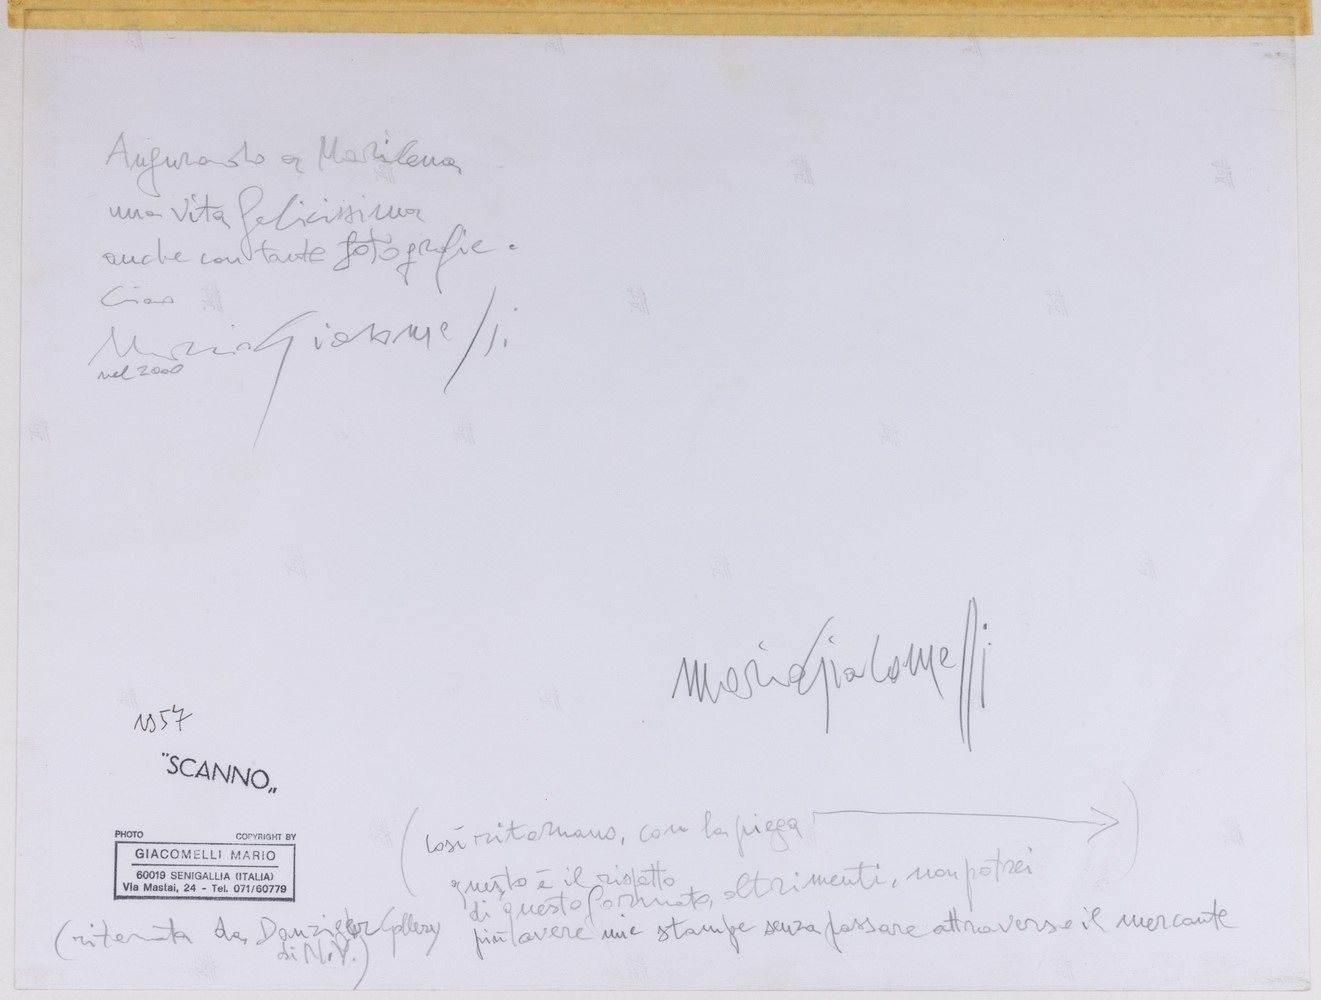 Augurando a Marilena
una vita felicissima
anche con tante fotografie.
Ciao
Mario Giacomelli
nel 2000
Mario Giacomelli
1957
"SCANNO„
PHOTO COPYRIGHT BY
GIACOMELLI MARIO
60019 SENIGALLIA (ITALIA)
Via Mastai, 24 - Tel. 071/60779
(ritornata da Danziger Gallery
di N.Y.)
(così ritornano, con la piega →)
questo è il rispetto
di questo formato, altrimenti, non potrei
più avere mie stampe senza passare attraverso il mercante